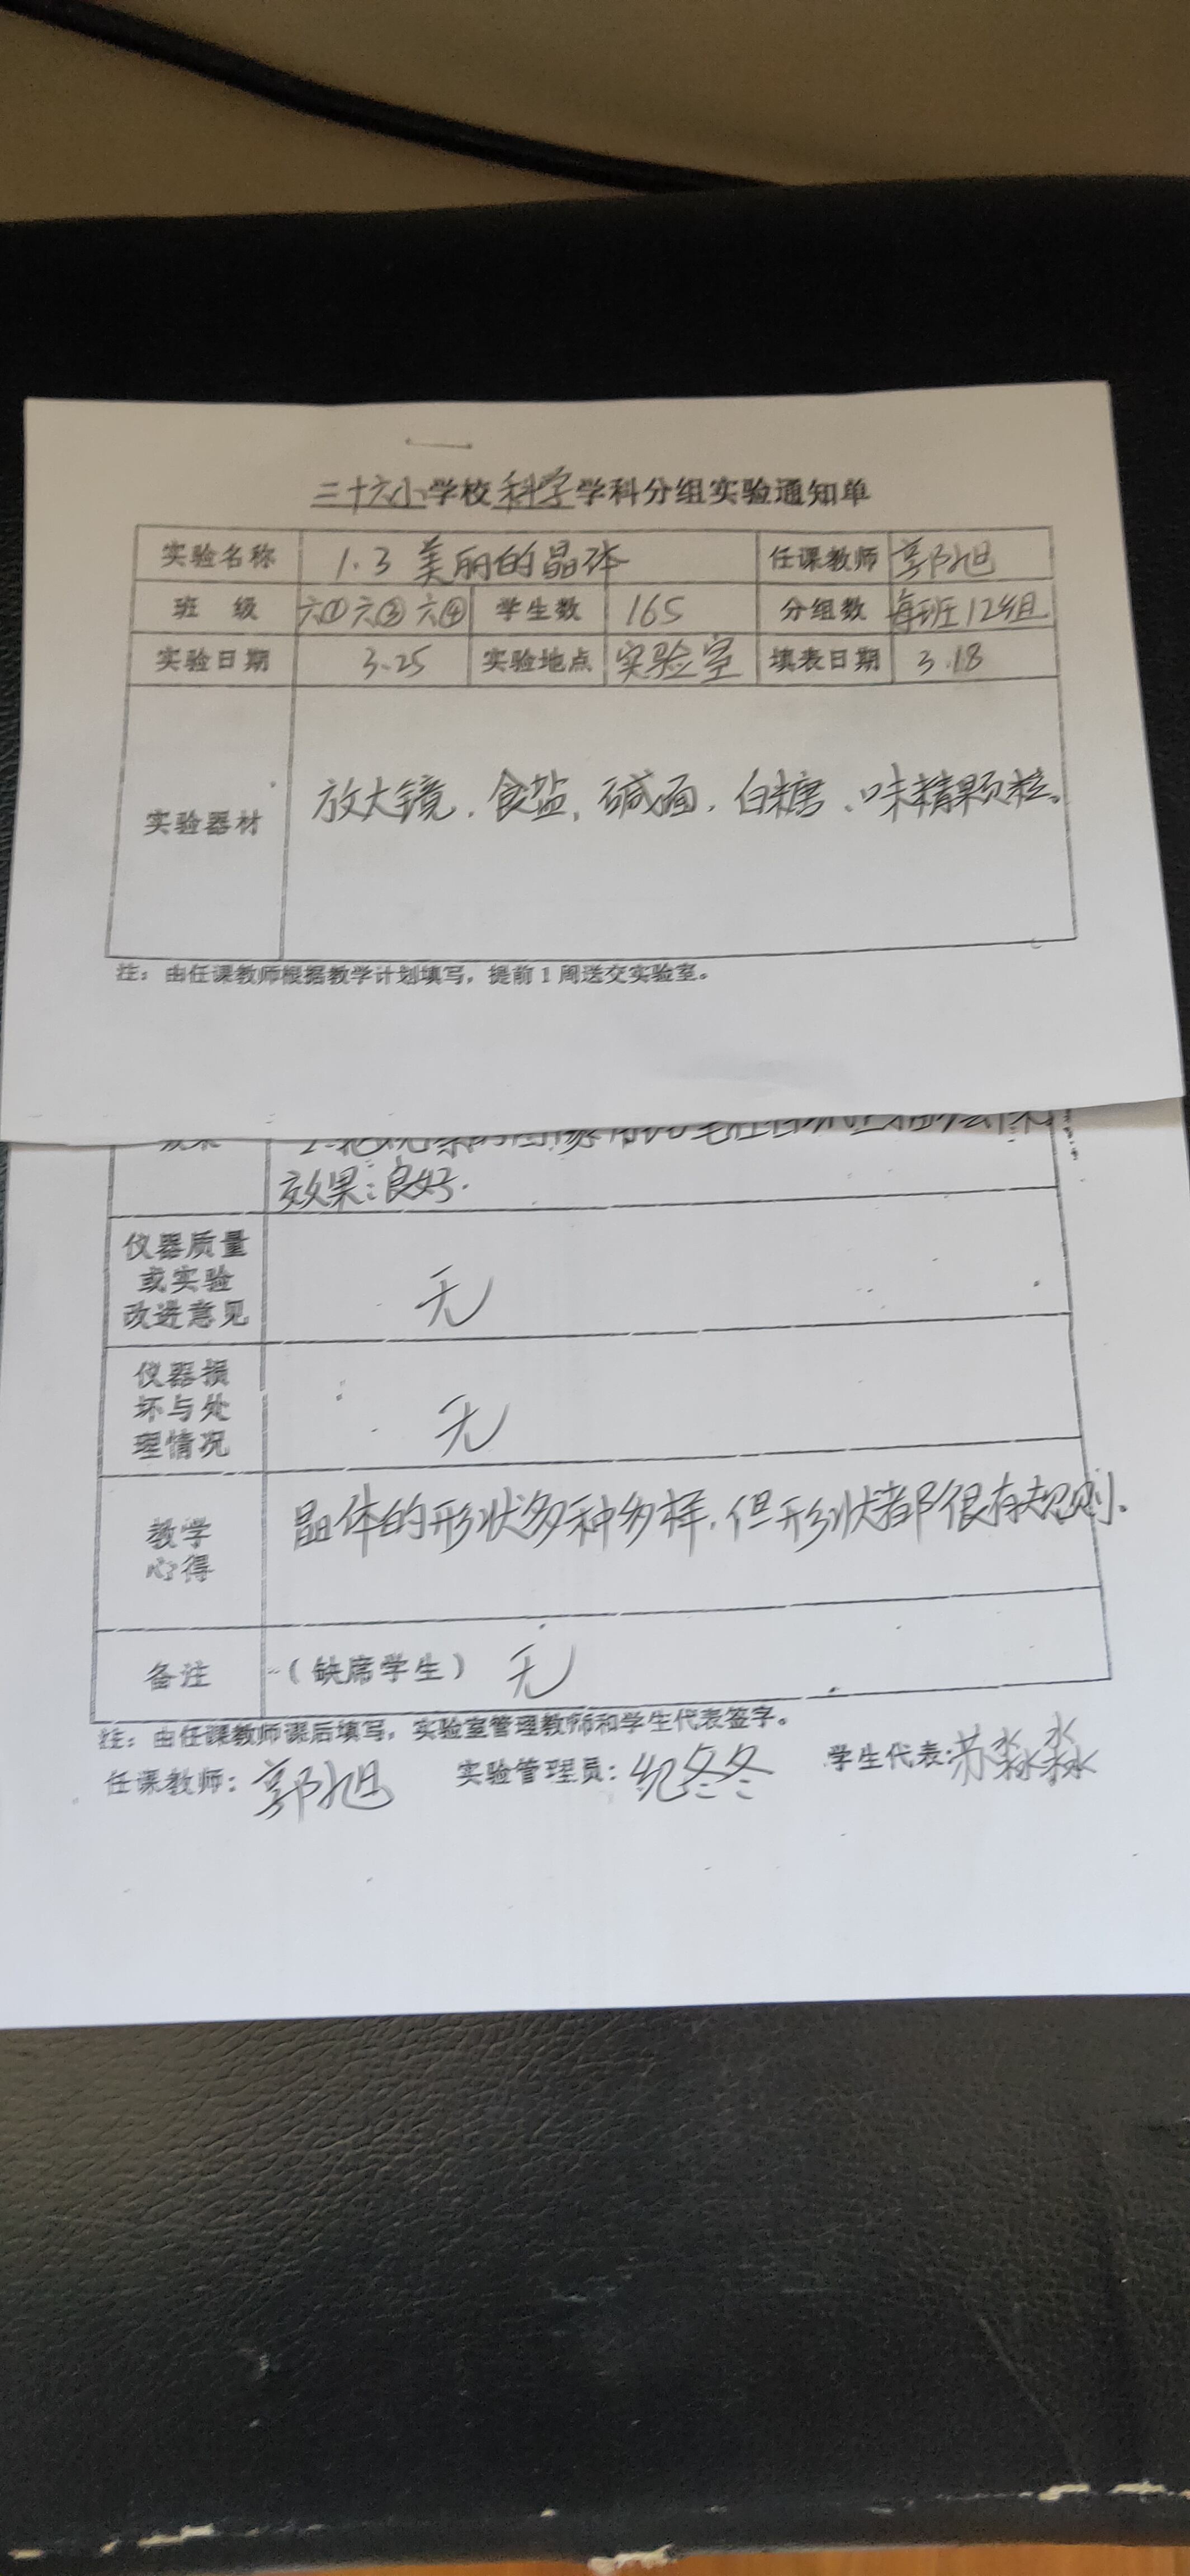 三十六小学校科学学科分组实验通知单
实验名称 1.3 美丽的晶体 任课教师 郭旭
班 级 六① 六③ 六④ 学生数 165 分组数 每班12组
实验日期 3.25 实验地点 实验室 填表日期 3.18
实验器材 放大镜、食盐、碱面、白糖、味精颗粒。
注：由任课教师根据教学计划填写，提前1周送交实验室。
效果：良好.
仪器质量
或实验
改进意见
无
仪器损
坏与处
理情况
无
教学
心得
晶体的形状多种多样，但形状都很有规则。
备注 （缺席学生） 无
注：由任课教师课后填写，实验室管理教师和学生代表签字。
任课教师：郭旭 实验管理员：纪冬冬 学生代表：苏淼淼